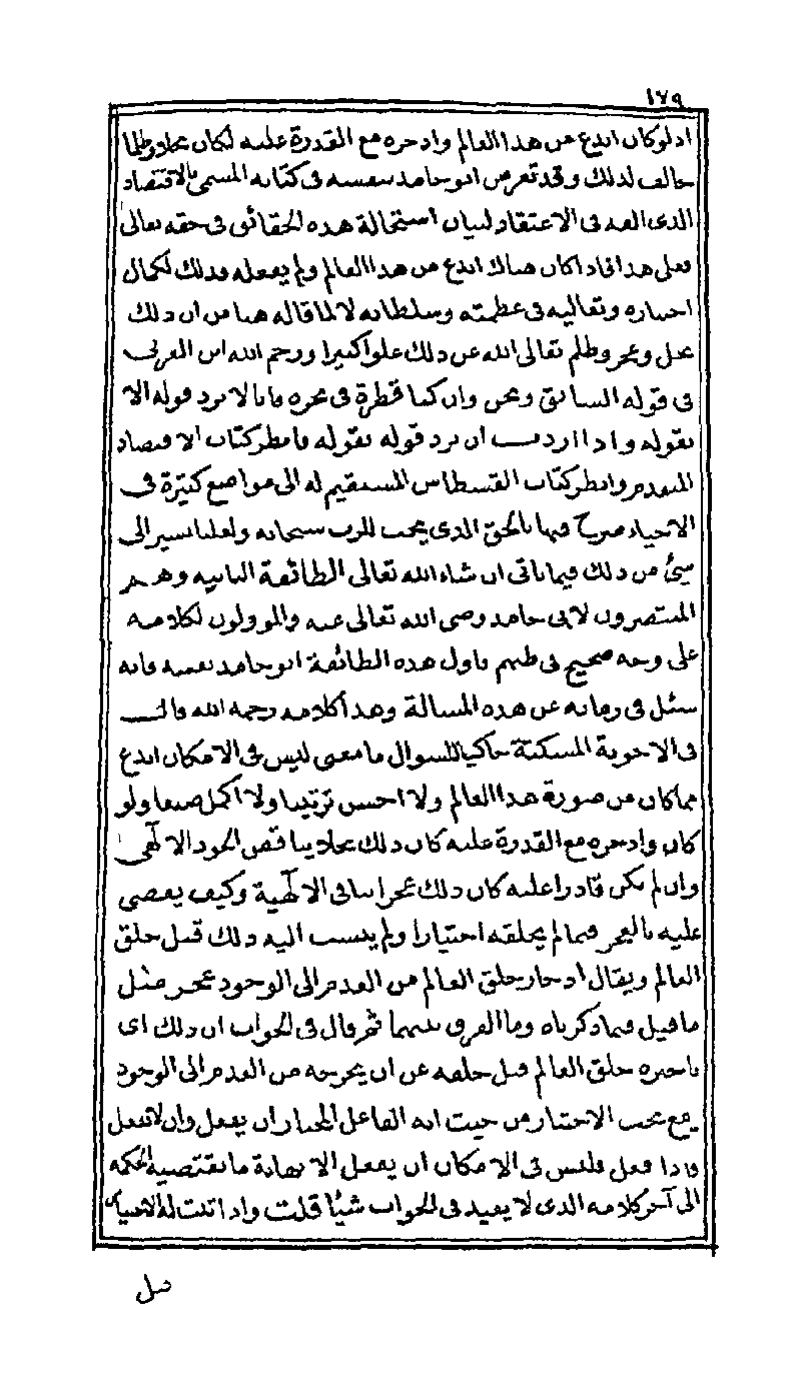 ١٧٩
اذ لو كان ابدع من هذا العالم وادخره مع القدرة عليه لكان بخلا وظلما
خالف لذلك وقد تعرض ابو حامد بنفسه في كتابه المسمى بالاقتصاد
الذى الفه في الاعتقاد لبيان استحالة هذه الحقائق في حقه تعالى
فعلى هذا فاذا كان هناك ابدع من هذا العالم ولم يفعله فذلك لكمال
اختياره وتعاليه في عظمته وسلطانه لا لما قاله هنا من ان ذلك
بخل وعجز وظلم تعالى الله عن ذلك علوا كبيرا ورحم الله ابن العربي
في قوله السابق ونحن وان كنا قطرة في بحره فانا لا نرد قوله الا
بقوله واذا اردت ان نرد قوله بقوله فانظر كتاب الاقتصاد
المتقدم وانظر كتاب القسطاس المستقيم له الى مواضع كثيرة في
الاحياء صرح فيها بالحق الذى يجب للرب سبحانه ولعلنا نسير الى
شئ من ذلك فيما ياتى ان شاء الله تعالى الطائفة الثانيه وهم
المنتصرون لابى حامد رضى الله تعالى عنه والمؤولون لكلامه
على وجه صحيح في ظنهم فاول هذه الطائفة ابو حامد نفسه فانه
سئل في زمانه عن هذه المسالة وهذا كلامه رحمه الله قال
في الاجوبة المسكتة حاكيا للسوال ما معنى ليس في الامكان ابدع
مما كان من صورة هذا العالم ولا احسن ترتيبا ولا اكمل صنعا ولو
كان وادخره مع القدرة عليه كان ذلك بخلا يناقض الجود الالهى
وان لم يكن قادرا عليه كان ذلك عجزا ينافى الالهية وكيف يقضى
عليه بالعجز فيما لم يخلقه اختيارا ولم ينسب اليه ذلك قبل خلق
العالم ويقال ادخار خلق العالم من العدم الى الوجود عجز مثل
ما قيل فيما ذكرناه وما الفرق بينهما ثم قال في الجواب ان ذلك اى
تاخيره خلق العالم قبل خلقه عن ان يخرجه من العدم الى الوجود
يقع تحت الاختيار من حيث انه الفاعل المختار ان يفعل وان لا يفعل
فاذا فعل فليس في الامكان ان يفعل الا نهاية ما تقتضيه الحكمة
الى آخر كلامه الذى لا يفيد في الجواب شيئا قلت واذا